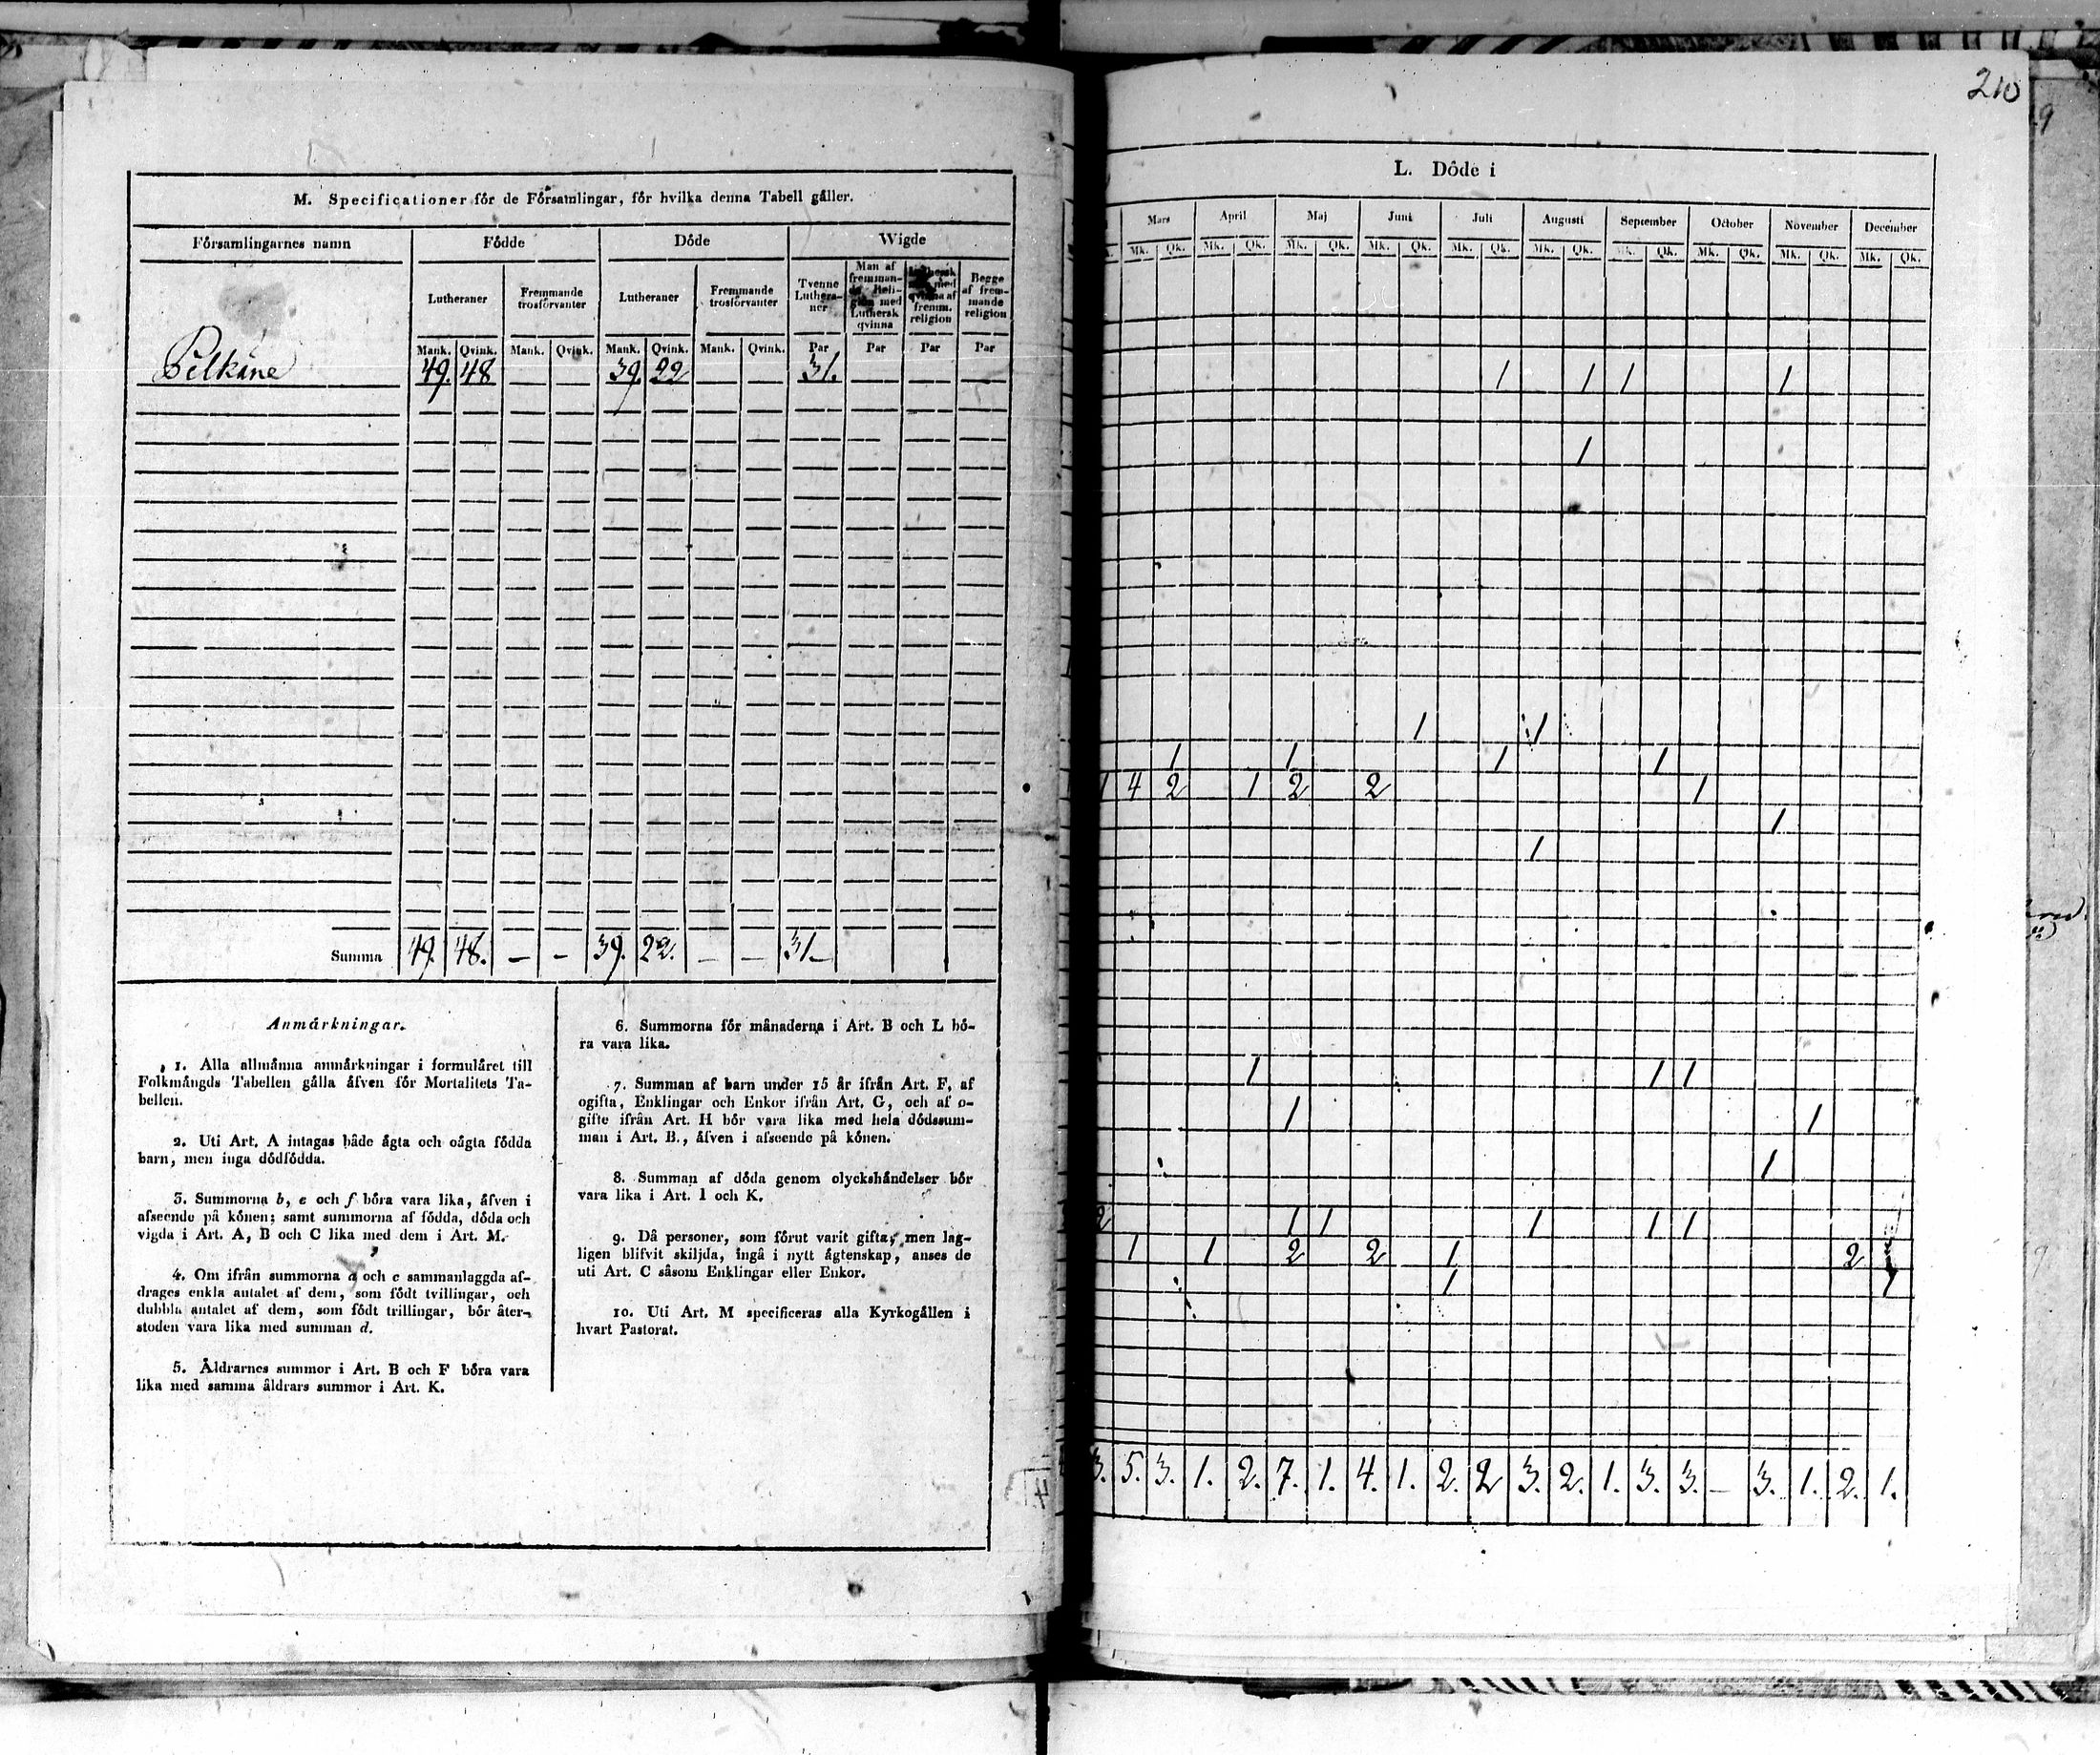 M. Specificationer fór de Fórsamlingar, fór hvilka denna Tabell gåller.
Fórsamlingarnes namn Fódde Dóde Wigde
Lutheraner Fremmande trosfórvanter Lutheraner Fremmande trosfórvanter Tvenne Lutheraner Man af fremmande Religion med Luthersk qvinna med qvinna af fremm. religion Begge af fremmande religion
Mank. Qvink. Mank. Qvink. Mank. Qvink. Mank. Qvink. Par Par Par Par
Pelkäne 49. 48 — — 39. 22 — — 31. — — —
Summa 49. 48. – – 39. 22. – – 31–
Anmårkningar.
1. Alla allmånna anmårkningar i formulåret till
Folkmångds Tabellen gålla åfven fór Mortalitets Ta-
bellen.
2. Uti Art. A intagas både ågta och oågta fódda
barn, men inga dódfódda.
3. Summorna b, e och f bóra vara lika, åfven i
afseende på kónen; samt summorna af fódda, dóda och
vigda i Art. A, B och C lika med dem i Art. M.
4. Om ifrån summorna a och c sammanlaggda af-
drages enkla antalet af dem, som fódt tvillingar, och
dubbla antalet af dem, som fódt trillingar, bór åter-
stoden vara lika med summan d.
5. Åldrarnes summor i Art. B och F bóra vara
lika med samma åldrars summor i Art. K.
6. Summorna fór månaderna i Art. B och L bó-
ra vara lika.
7. Summan af barn under 15 år ifrån Art. F, af
ogifta, Enklingar och Enkor ifrån Art. G, och af o-
gifte ifrån Art. H bór vara lika med hela dódssum-
man i Art. B., åfven i afseende på kónen.
8. Summan af dóda genom olyckshåndelser bór
vara lika i Art. I och K.
9. Då personer, som fórut varit gifta, men lag-
ligen blifvit skiljda, ingå i nytt ågtenskap, anses de
uti Art. C såsom Enklingar eller Enkor.
10. Uti Art. M specificeras alla Kyrkogållen i
hvart Pastorat.
210
L. Dôde i
Mars April Maj Juni Juli Augusti September October November December
Mk. Qk. Mk. Qk. Mk. Qk. Mk. Qk. Mk. Qk. Mk. Qk. Mk. Qk. Mk. Qk. Mk. Qk. Mk. Qk.
1 1 1 1
1
1 1
1 1 1 1
1 4 2 1 2 2 1
1
1
1 1 1
1 1
1
2 1 1 1 1 1
1 1 2 2 1 2
1 1
3. 5. 3. 1. 2. 7. 1. 4. 1. 2. 2 3. 2. 1. 3. 3. – 3. 1. 2. 1.